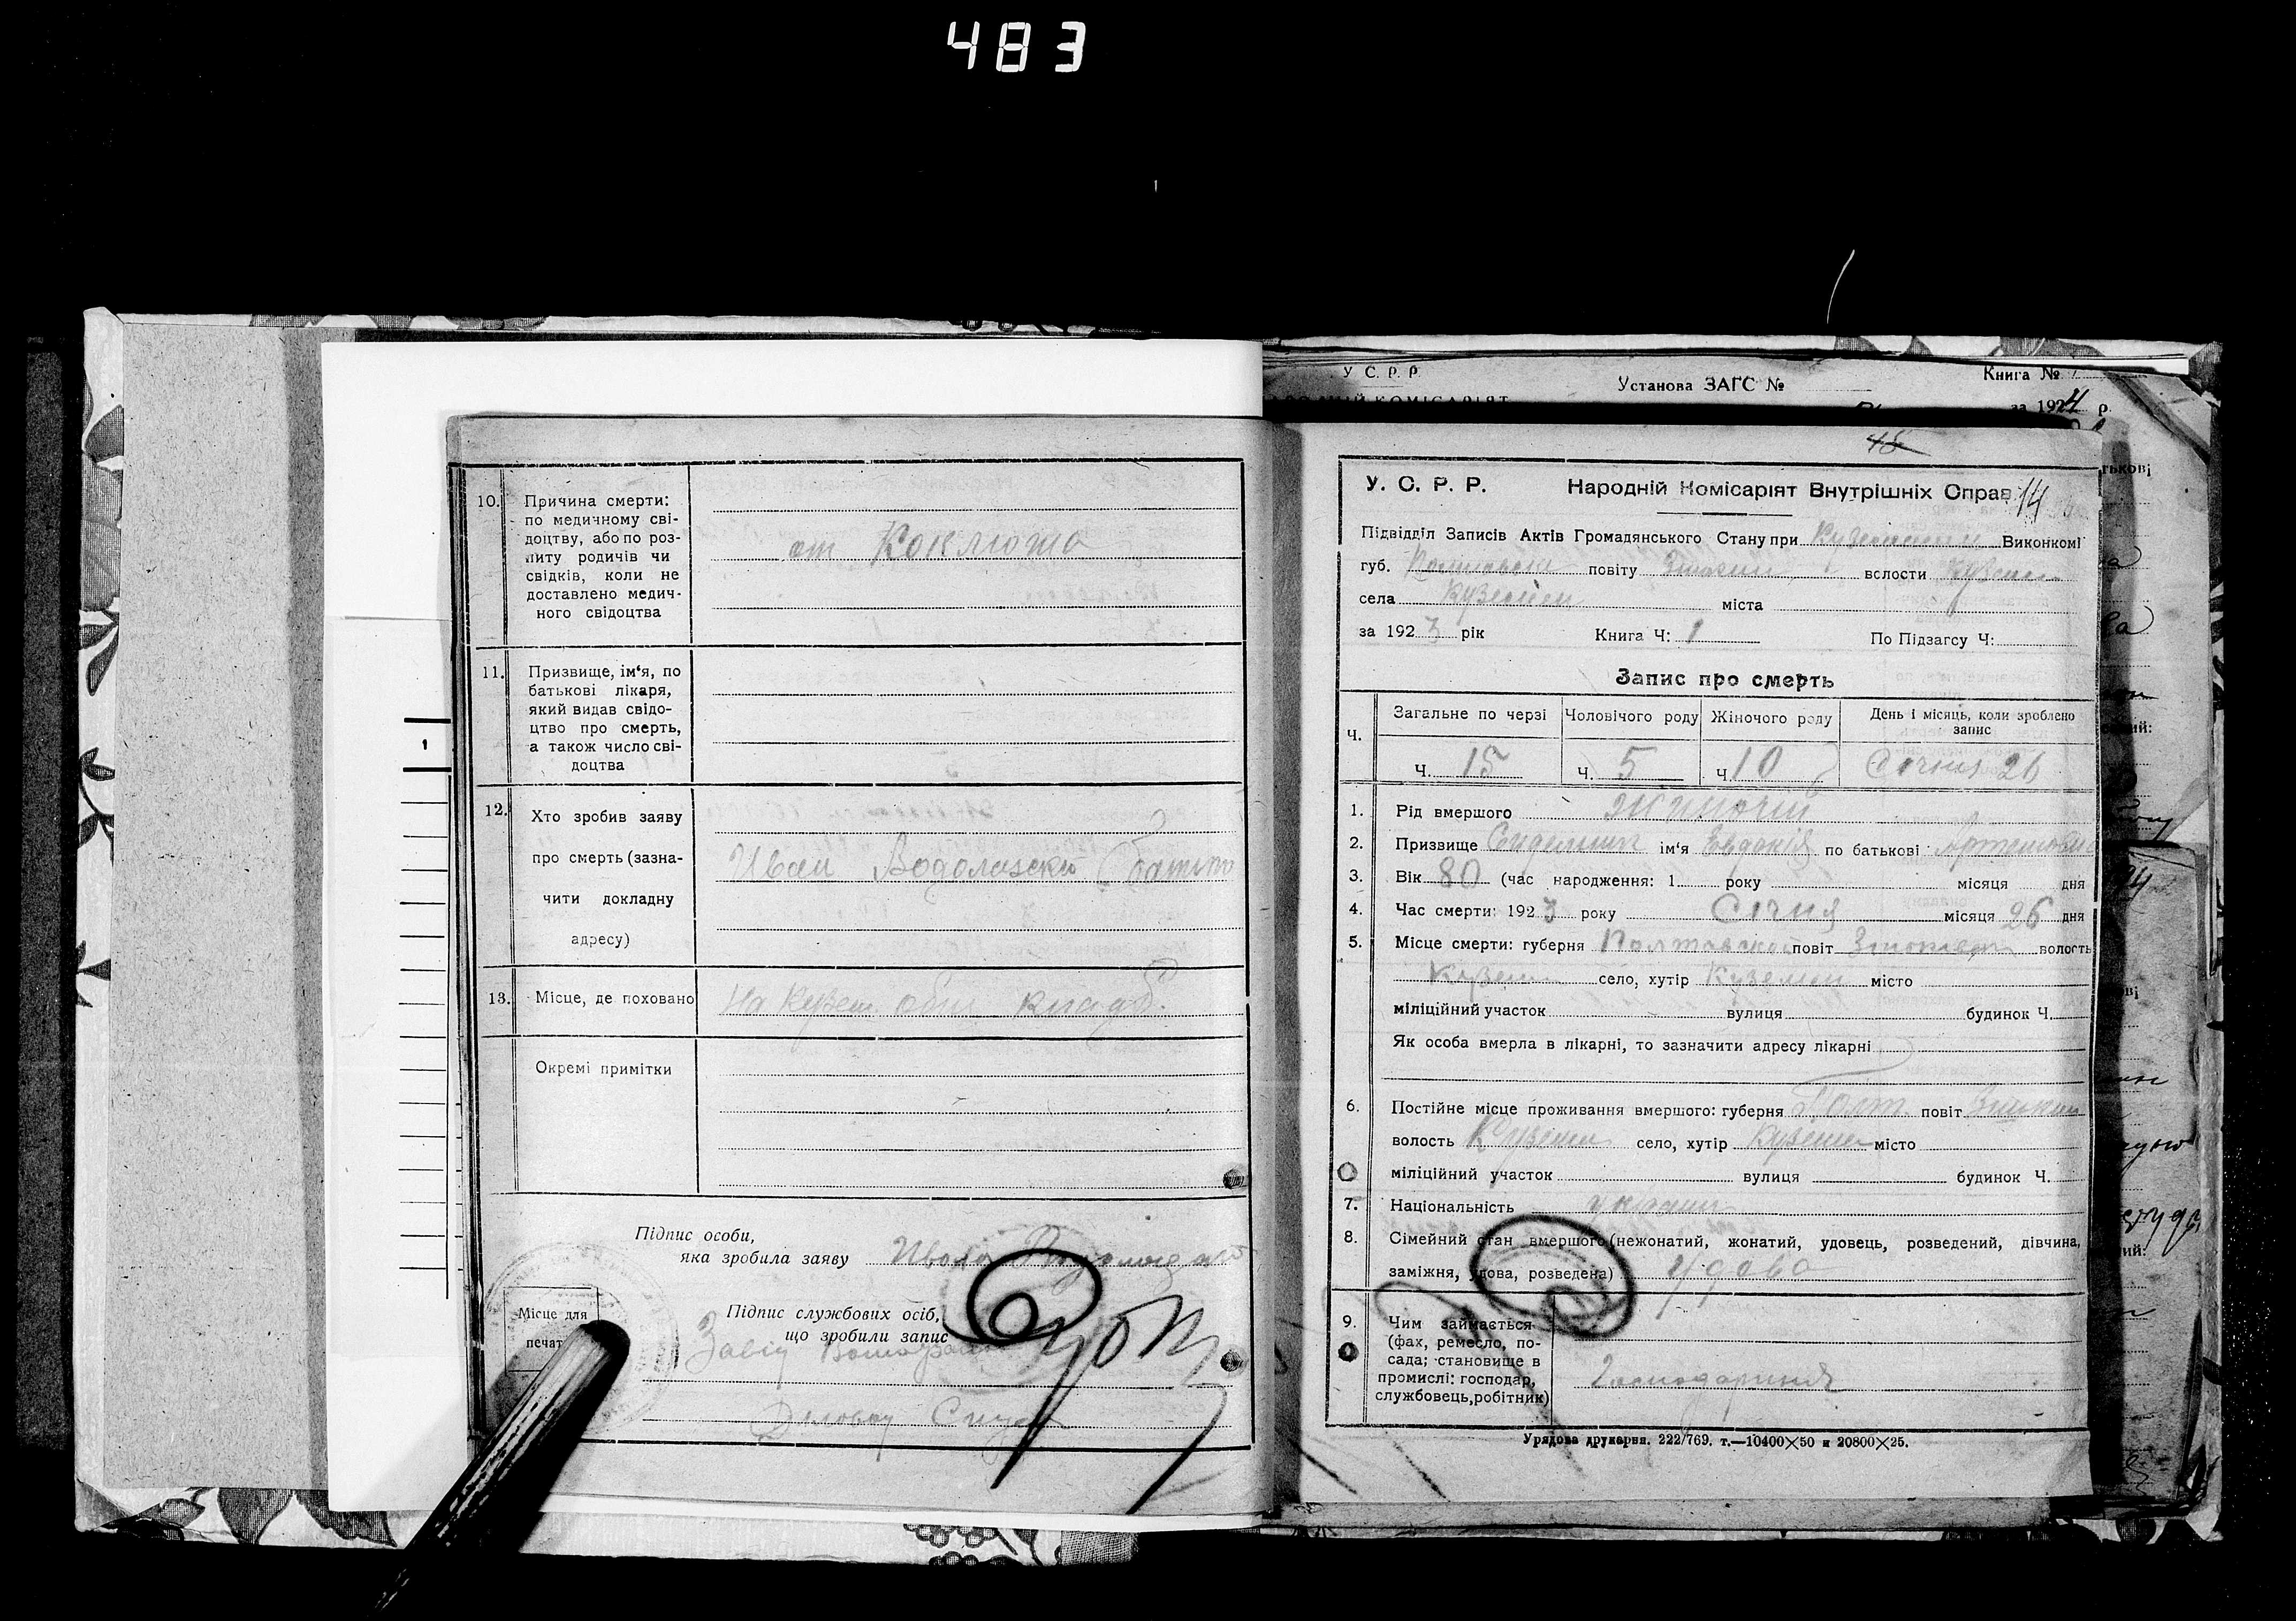 483
10. Причина смерти:
по медичному сві-
доцтву, або по роз-
питу родичів чи
свідків, коли не
доставлено медич-
ного свідоцтва
от Коклюша
11. Призвище, ім‘я, по
батькові лікаря,
який видав свідо-
цтво про смерть,
а також число сві-
доцтва
12. Хто зробив заяву
про смерть (зазна-
чити докладну
адресу)
Иван Водолазский батько
13. Місце, де поховано
На Кузем. общ. кладб.
Окремі примітки
Підпис особи,
яка зробила заяву
Місце для
печат
Підпис службових осіб,
що зробили запис
1
У С. Р. Р.
Установа ЗАГС №
Книга №
за 1924 р.
45
У. С. Р. Р. Народній Комісаріят Внутрішніх Справ 14
Підвідділ Записів Актів Громадянського Стану при Виконкомі
губ. повіту волости
села Куземин міста
за 1923 рік Книга Ч: 1 По Підзагсу Ч:
Запис про смерть
Ч. Загальне по черзі Чоловічого роду Жіночого роду День і місяць, коли зроблено
запис
Ч. 15 Ч. 5 Ч. 10 Січня 26
1. Рід вмершого жиночий
2. Призвище ім‘я Евдокія по батькові
3. Вік 80 (час народження: 1 року місяця дня
4. Час смерти: 1923 року Січня місяця 26 дня
5. Місце смерти: губерня Полтавской повіт волость
Кузем село, хутір Куземин місто
міліційний участок вулиця будинок Ч.
Як особа вмерла в лікарні, то зазначити адресу лікарні
6. Постійне місце проживання вмершого: губерня Полт. повіт
волость село, хутір місто
міліційний участок вулиця будинок Ч.
7. Національність
8. Сімейний стан вмершого (нежонатий, жонатий, удовець, розведений, дівчина,
заміжня, удова, розведена) Удова
9. Чим займається
(фах, ремесло, по-
сада; становище в
промислі: господар,
службовець,робітник)
Господариня
Урядова друкарня. 222/769. т.—10400×50 и 20800×25.